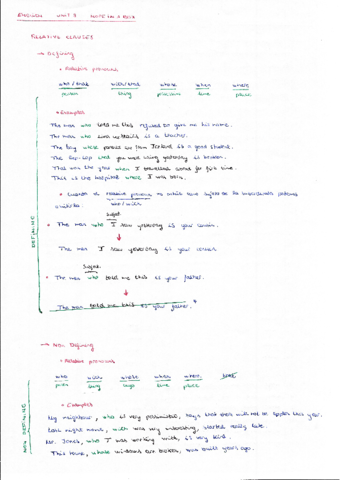 ENGLISH UNIT 3
RELATIVE CLAUSES
→ Defining
• Relative pronouns
who / that which / that whose when where
person thing possession time place
• Examples
The man who told me this refused to give me his name.
The man who lives upstairs is a teacher.
The boy whose parents are from Ireland is a good student.
The lap-top you were using yesterday is broken.
That was the year when I travelled alone for first time.
This is the hospital where I was born.
who/which
Subject
• The man who I saw yesterday is your cousin.
↓
The man I saw yesterday is your cousin.
Subject
• The man who told me this is your father.
↓
The man told me this is your father.
DEFINING
→ Non Defining
• Relative pronouns
who which whose when where
person thing time place
• Examples
My neighbour, who is very pessimistic, says that there will not be apples this year.
Last night news, which was very interesting, started really late.
Mr. Jones, who I was working with, is very kind.
This house, whose windows are broken, was built years ago.
NON DEFINING